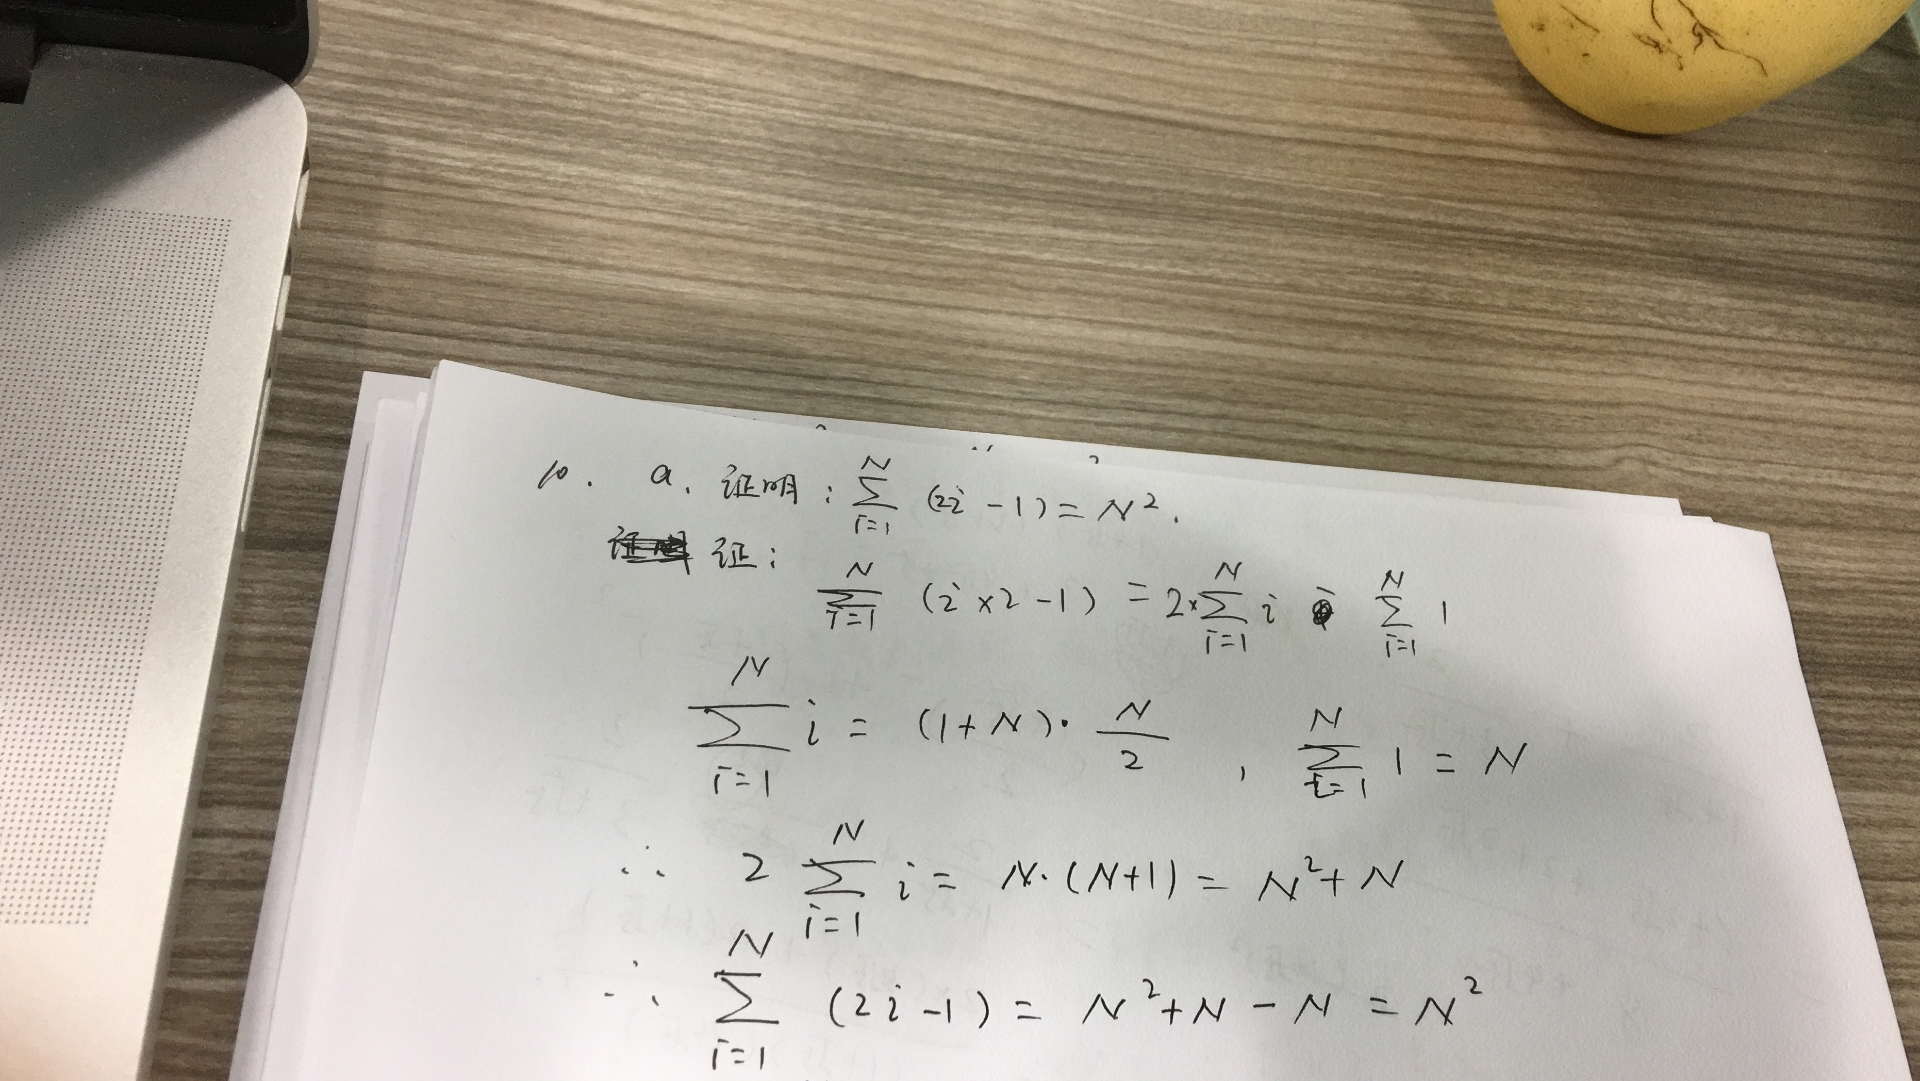 10. a. 证明: \sum_{i=1}^{N} (2i-1) = N^2.
证: \sum_{i=1}^{N} (i×2-1) = 2×\sum_{i=1}^{N} i \sum_{i=1}^{N} 1
\sum_{i=1}^{N} i = (1+N)·\frac{N}{2} , \sum_{i=1}^{N} 1 = N
∴ 2 \sum_{i=1}^{N} i = N·(N+1) = N^2+N
∴ \sum_{i=1}^{N} (2i-1) = N^2+N-N = N^2